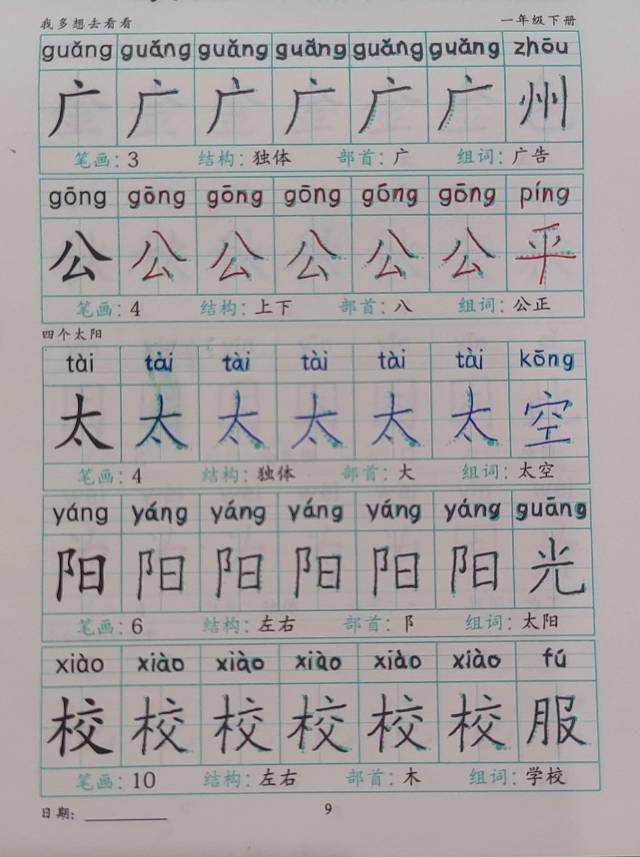 我多想去看看 一年级下册
guǎng guǎng guǎng guǎng guǎng guǎng zhōu
广 广 广 广 广 广 州
笔画：3 结构：独体 部首：广 组词：广告
gōng gōng gōng gōng gōng gōng píng
公 公 公 公 公 公 平
笔画：4 结构：上下 部首：八 组词：公正
四个太阳
tài tài tài tài tài tài kōng
太 太 太 太 太 太 空
笔画：4 结构：独体 部首：大 组词：太空
yáng yáng yáng yáng yáng yáng guāng
阳 阳 阳 阳 阳 阳 光
笔画：6 结构：左右 部首：阝 组词：太阳
xiào xiào xiào xiào xiào xiào fú
校 校 校 校 校 校 服
笔画：10 结构：左右 部首：木 组词：学校
日期：
9